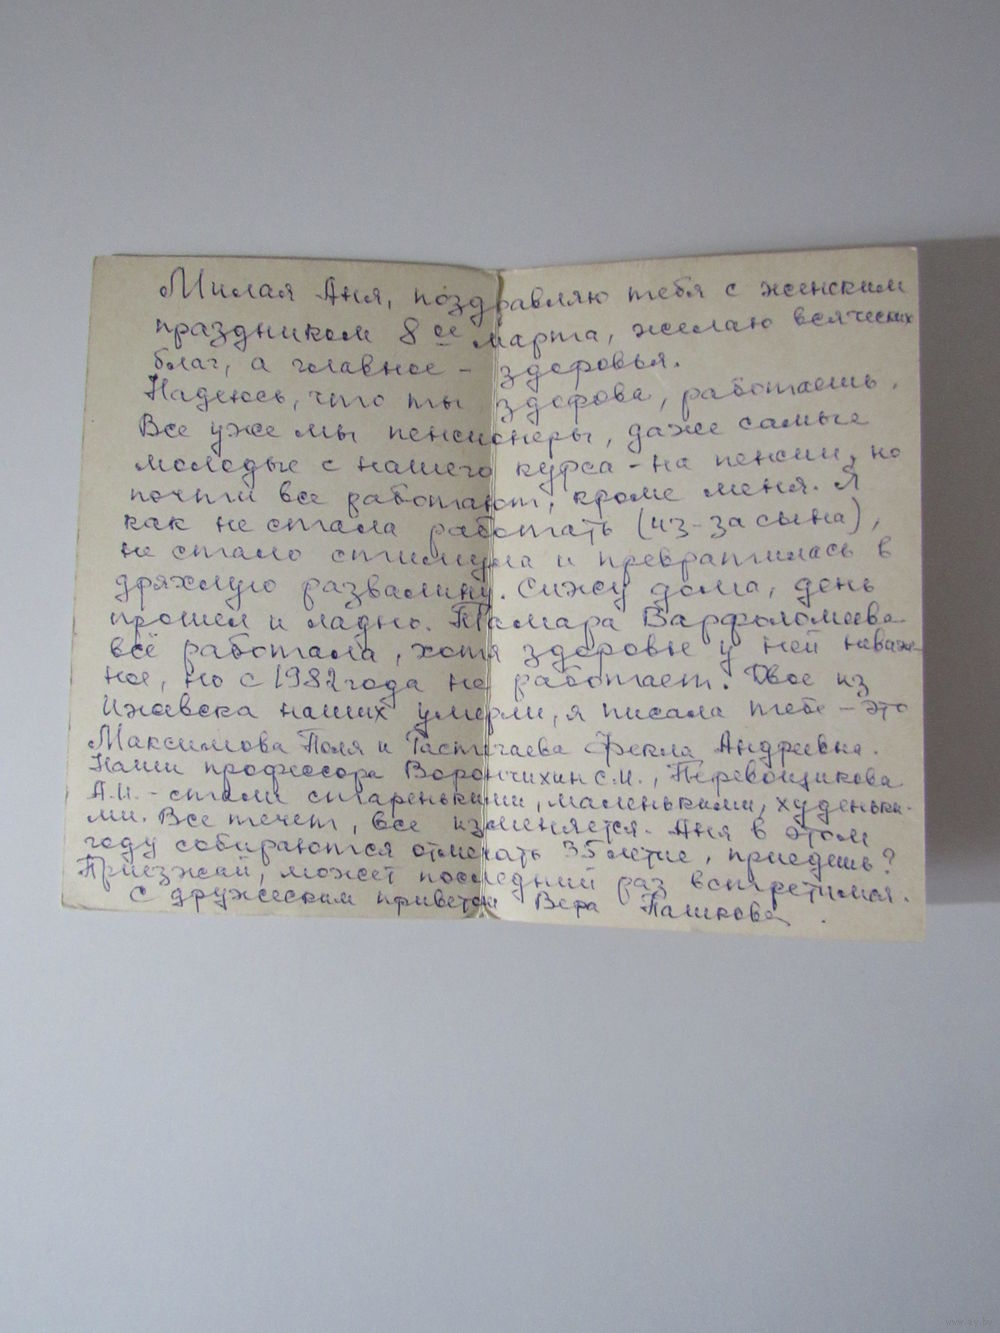 Милая Аня, поздравляю тебя с женским
праздником 8ое марта, желаю всяческих
благ, а главное - здоровья.
Надеюсь, что ты здорова, работаешь.
Все уже мы пенсионеры, даже самые
молодые с нашего курса - на пенсии, но
почти все работают, кроме меня. Я
как не стала работать (из-за сына),
не стало стимула и превратилась в
дряхлую развалину. Сижу дома, день
прошел и ладно. Тамара Варфоломеева
всё работала, хотя здоровье у ней неваж-
ное, но с 1982 года не работает. Двое из
Ижевска наших умерли, я писала тебе - это
Максимова Поля и Фекла Андреевна.
Наши профессора Ворончихин С.И., Перевощикова
А.И. - стали старенькими, маленькими, худеньки-
ми. Все течет, все изменяется. Аня в этом
году собираются отмечать 35 летие, приедешь?
Приезжай, может последний раз встретимся.
С дружеским приветом Вера Пашкова.
www.ay.by